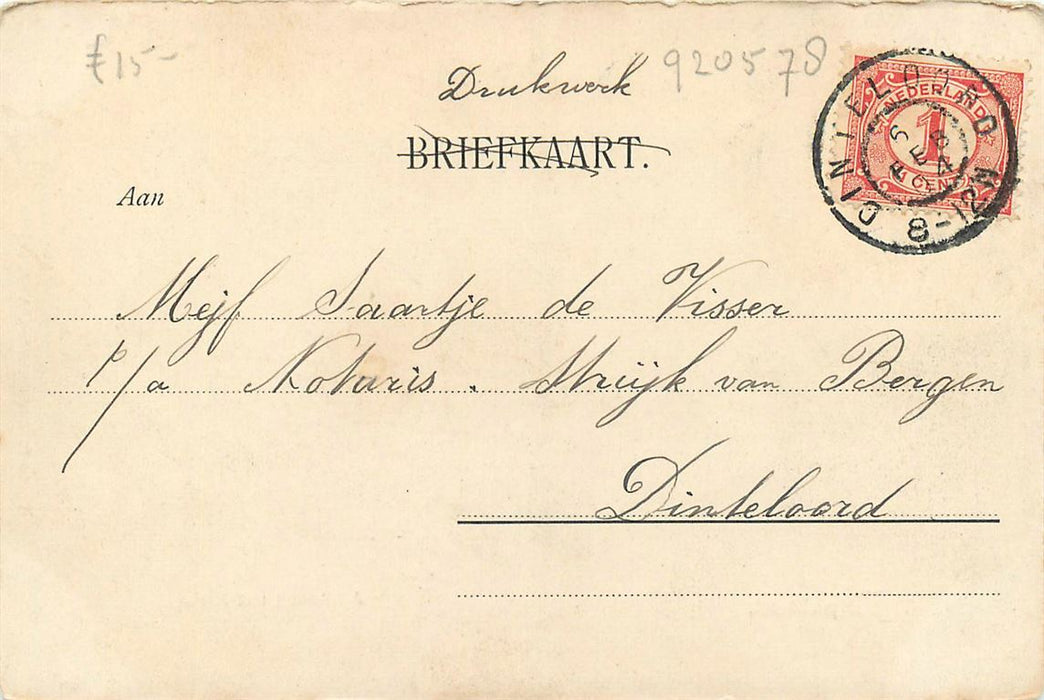 £15-
920578
Drukwerk
BRIEFKAART.
NEDERLAND
1
1 CENT
DINTELOORD
6 FEB 04
8-12M
Aan
Mejf Saartje de Visser
p/a Notaris. Struijk van Bergen
Dinteloord